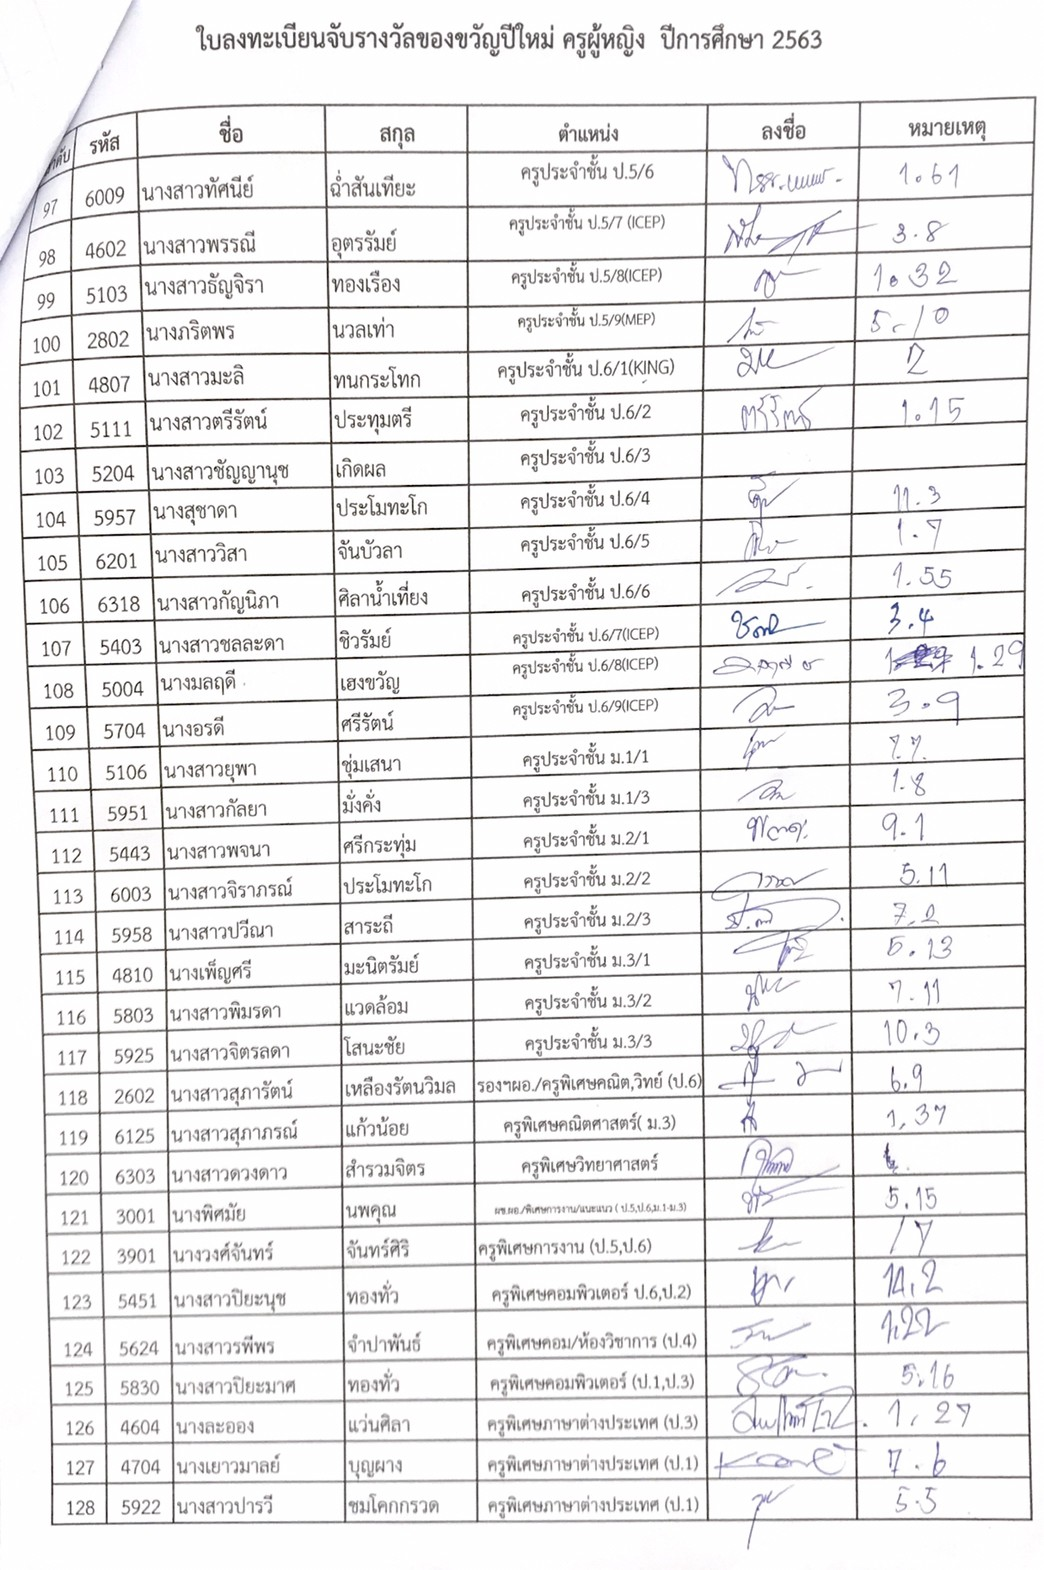 ใบลงทะเบียนจับรางวัลของขวัญปีใหม่ ครูผู้หญิง ปีการศึกษา 2563
รหัส ชื่อ สกุล ตำแหน่ง ลงชื่อ หมายเหตุ
97 6009 นางสาวทัศนีย์ ฉ่ำสันเทียะ ครูประจำชั้น ป.5/6 1.61
98 4602 นางสาวพรรณี อุตรรัมย์ ครูประจำชั้น ป.5/7 (ICEP) 3.8
99 5103 นางสาวธัญจิรา ทองเรือง ครูประจำชั้น ป.5/8(ICEP) 1.32
100 2802 นางภริตพร นวลเท่า ครูประจำชั้น ป.5/9(MEP) 5.10
101 4807 นางสาวมะลิ ทนกระโทก ครูประจำชั้น ป.6/1(KING)
102 5111 นางสาวตรีรัตน์ ประทุมตรี ครูประจำชั้น ป.6/2 ตรีรัตน์ 1.15
103 5204 นางสาวชัญญานุช เกิดผล ครูประจำชั้น ป.6/3
104 5957 นางสุชาดา ประโมทะโก ครูประจำชั้น ป.6/4 11.3
105 6201 นางสาววิสา จันบัวลา ครูประจำชั้น ป.6/5 1.7
106 6318 นางสาวกัญนิภา ศิลาน้ำเที่ยง ครูประจำชั้น ป.6/6 1.55
107 5403 นางสาวชลละดา ชิวรัมย์ ครูประจำชั้น ป.6/7(ICEP) 3.4
108 5004 นางมลฤดี เฮงขวัญ ครูประจำชั้น ป.6/8(ICEP) 1.29
109 5704 นางอรดี ศรีรัตน์ ครูประจำชั้น ป.6/9(ICEP) 3.9
110 5106 นางสาวยุพา ชุ่มเสนา ครูประจำชั้น ม.1/1 7.7
111 5951 นางสาวกัลยา มั่งคั่ง ครูประจำชั้น ม.1/3 1.8
112 5443 นางสาวพจนา ศรีกระทุ่ม ครูประจำชั้น ม.2/1 9.1
113 6003 นางสาวจิราภรณ์ ประโมทะโก ครูประจำชั้น ม.2/2 5.11
114 5958 นางสาวปวีณา สาระถี ครูประจำชั้น ม.2/3 7.2
115 4810 นางเพ็ญศรี มะนิตรัมย์ ครูประจำชั้น ม.3/1 5.13
116 5803 นางสาวพิมรดา แวดล้อม ครูประจำชั้น ม.3/2 7.11
117 5925 นางสาวจิตรลดา โสนะชัย ครูประจำชั้น ม.3/3 10.3
118 2602 นางสาวสุภารัตน์ เหลืองรัตนวิมล รองฯผอ./ครูพิเศษคณิต,วิทย์ (ป.6) 6.9
119 6125 นางสาวสุภาภรณ์ แก้วน้อย ครูพิเศษคณิตศาสตร์( ม.3) 1,37
120 6303 นางสาวดวงดาว สำรวมจิตร ครูพิเศษวิทยาศาสตร์
121 3001 นางพิศมัย นพคุณ ผช.ผอ./พิเศษการงาน/แนะแนว ( ป.5,ป.6,ม.1-ม.3) 5.15
122 3901 นางวงศ์จันทร์ จันทร์ศิริ ครูพิเศษการงาน (ป.5,ป.6)
123 5451 นางสาวปิยะนุช ทองทั่ว ครูพิเศษคอมพิวเตอร์ ป.6,ป.2) 14.2
124 5624 นางสาวรพีพร จำปาพันธ์ ครูพิเศษคอม/ห้องวิชาการ (ป.4) 1.22
125 5830 นางสาวปิยะมาศ ทองทั่ว ครูพิเศษคอมพิวเตอร์ (ป.1,ป.3) 5.16
126 4604 นางละออง แว่นศิลา ครูพิเศษภาษาต่างประเทศ (ป.3) 1.27
127 4704 นางเยาวมาลย์ บุญผาง ครูพิเศษภาษาต่างประเทศ (ป.1) 7.6
128 5922 นางสาวปารวี ชมโคกกรวด ครูพิเศษภาษาต่างประเทศ (ป.1) 5.5